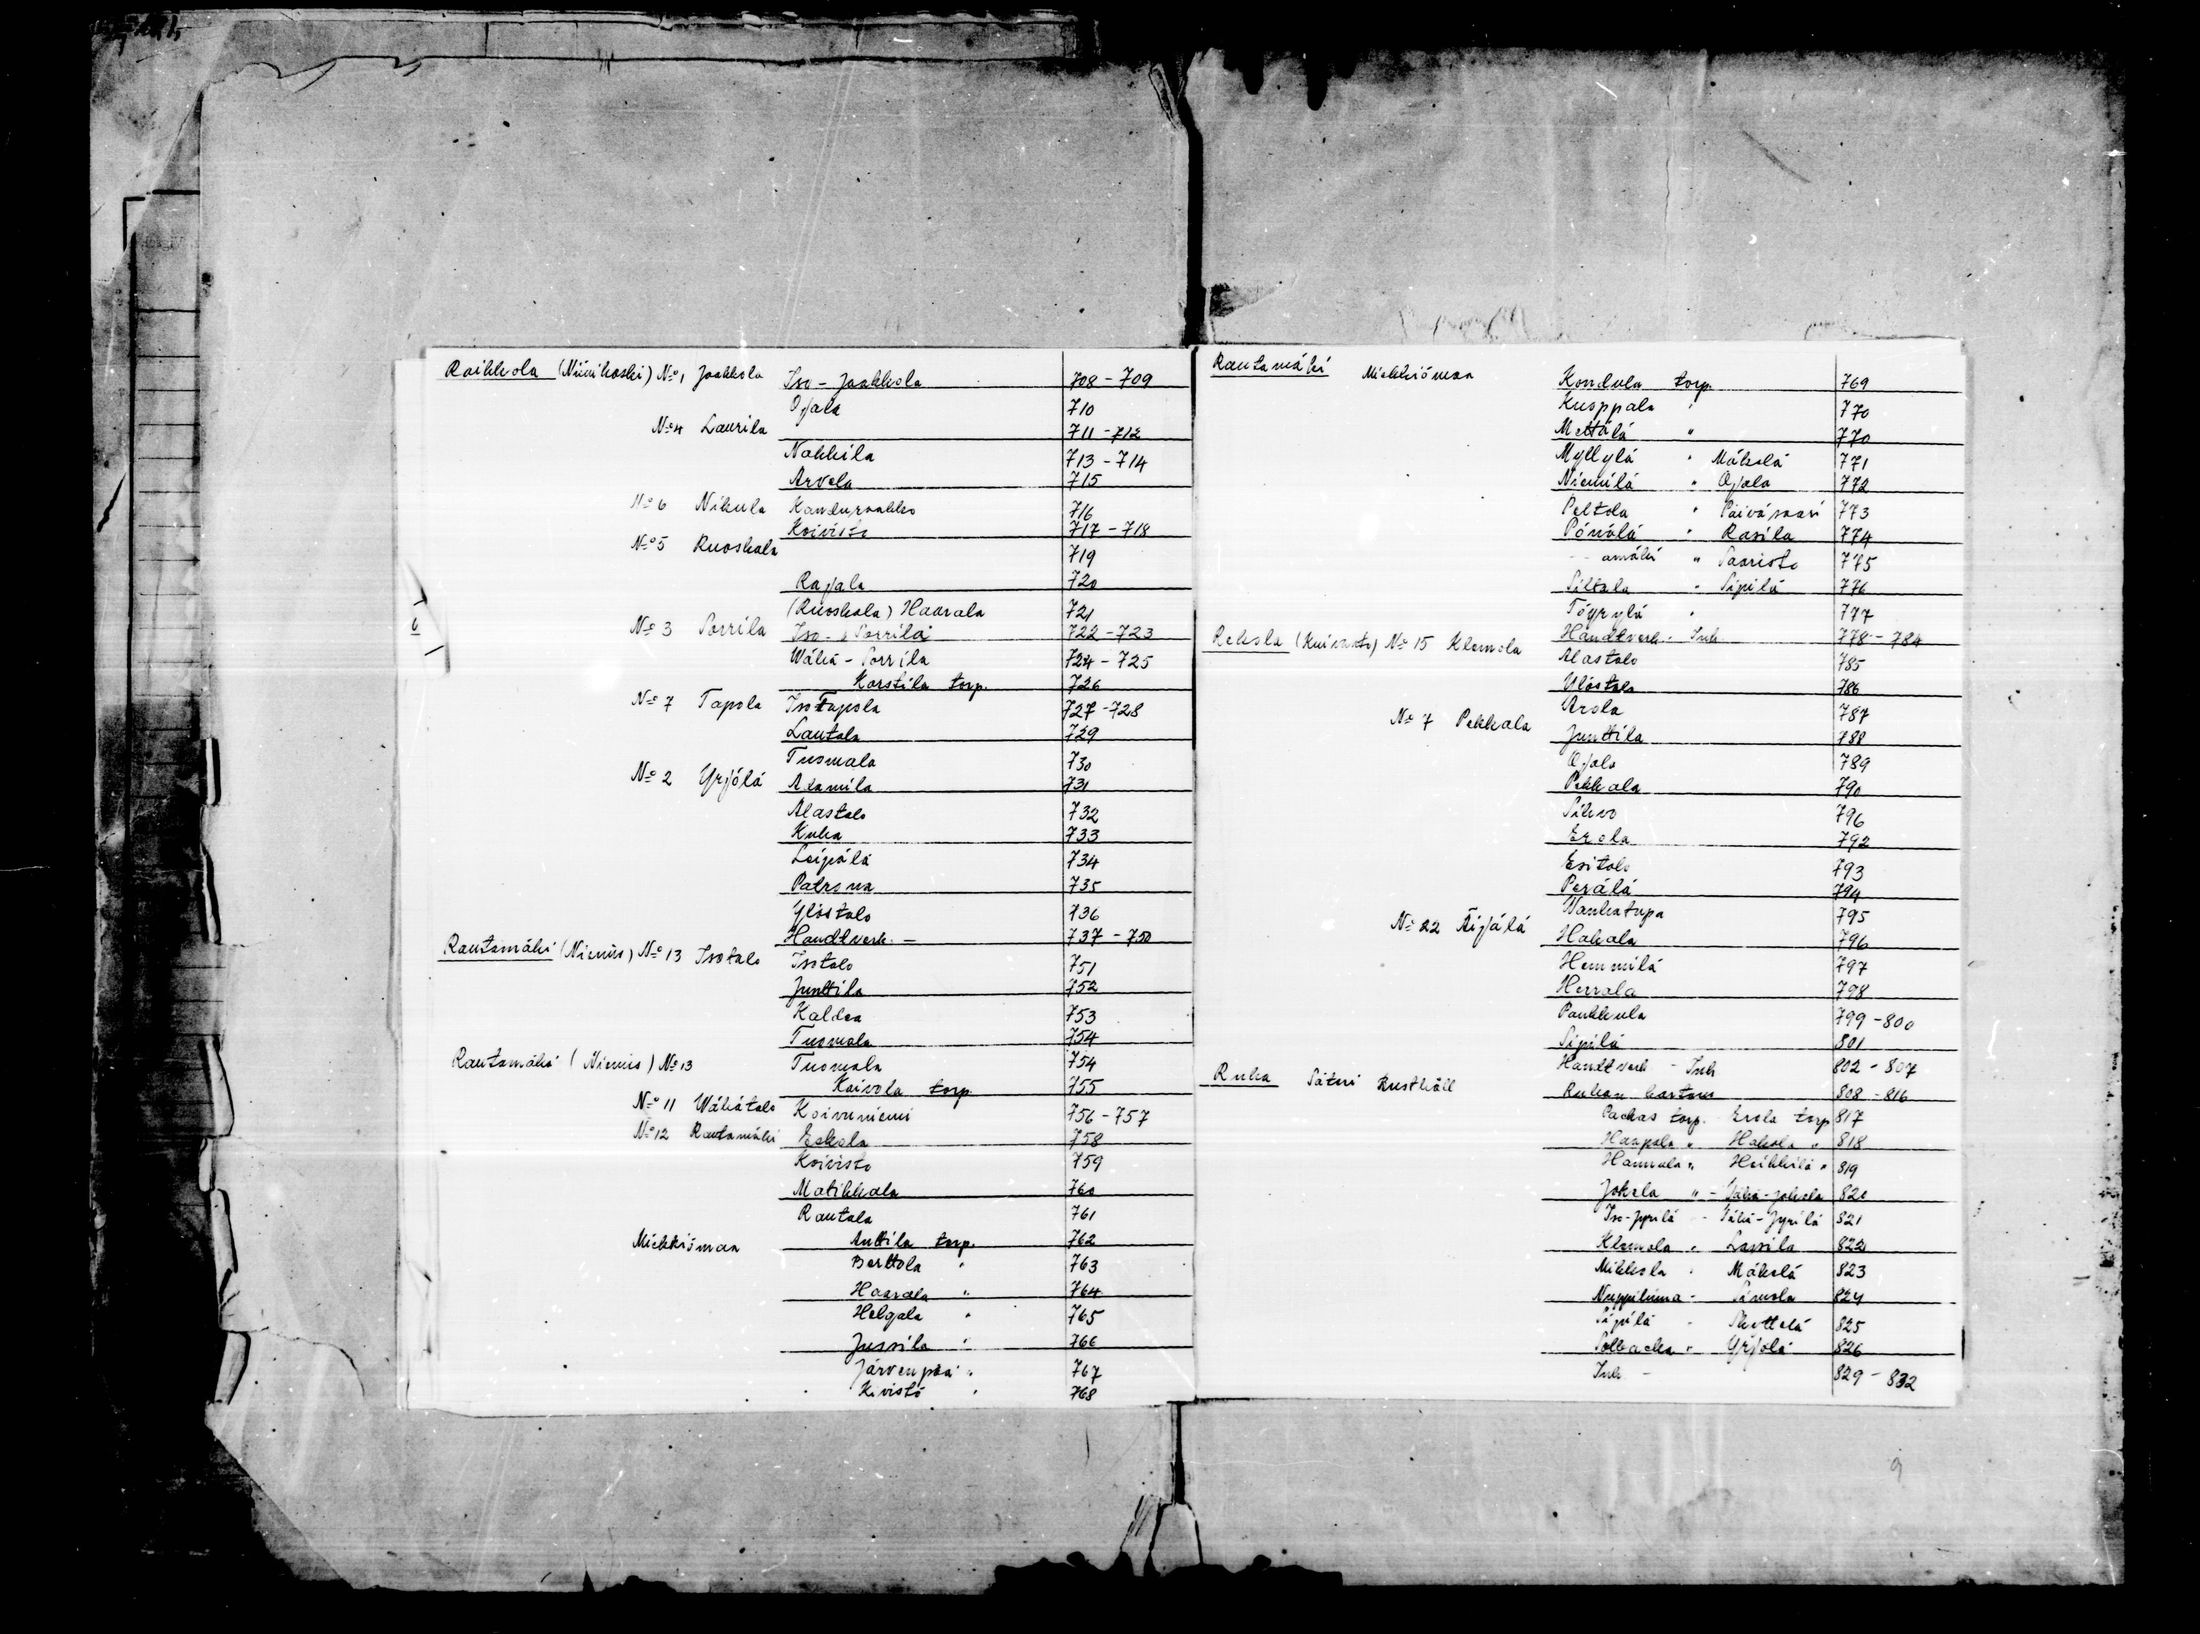 Raikkola (Niinikoski) No 1 Jaakkola Iso - Jaakkola 708 - 709
Ojala 710
No 4 Laurila 711 - 712
Nokkila 713 - 714
Arvela 715
No 6 Nikula 716
Koivisto 717 - 718
No 5 Ruoskala 719
Rajala 720
(Ruoskala) Haarala 721
No 3 Sorrila Iso - Sorrila 722 - 723
Wähä - Sorrila 724 - 725
Karstila torp. 726
No 7 Tapola Iso Tapola 727 - 728
Lautala 729
Tuomala 730
No 2 Yrjölä Adamila 731
Alastalo 732
Kuha 733
Leipälä 734
Patrona 735
Ylöstalo 736
Handtverk. - 737 - 750
Rautamäki (Niemis) No 13 Isotalo Isotalo 751
Junttila 752
Kaldea 753
Tuomala 754
Rautamäki (Niemis) No 13 Tuomala 754
Koivola torp. 755
No 11 Wähätalo Koivuniemi 756 - 757
No 12 Rautamäki Eskola 758
Koivisto 759
Matikkala 760
Rautala 761
Miekkiömaa Anttila torp. 762
Berttola " 763
Haarala " 764
Helgala " 765
Jussila " 766
Järvenpää " 767
Kivistö " 768
Rautamäki Miekkiömaa Kondula torp. 769
Kuoppala " 770
Mettälä " 770
Myllylä " Mäkelä 771
Niemilä " Ojala 772
Peltola " Päiväsaari 773
Pönälä " Rasila 774
amäki " Saaristo 775
Siltala " Sipilä 776
Töyrylä " 777
Handtverk. - Inh. 778 - 784
Rekola (Kuivasto) No 15 Klemola Alastalo 785
Ylöstalo 786
No 7 Pekkala Arola 787
Junttila 788
Ojala 789
Pekkala 790
Sihvo 796
Erola 792
Esitalo 793
Perälä 794
Wanhatupa 795
No 22 Äijälä Hakala 796
Hemmilä 797
Herrala 798
Paukkula 799 - 800
Sipilä 801
Handtverk - Inh 802 - 807
Ruha Säteri Rusthåll Ruhan kartano 808 - 816
Packas torp. - Erola torp 817
Haapala " Hakola " 818
Hannula " Heikkilä " 819
Jokela " - Vähä-Jokela 820
Iso-Jyrilä - Vähä-Jyrilä 821
Klemola " Lassila 822
Mikkola " Mäkelä 823
Nuppiluma - Simola 824
Sipilä - Skyttelä 825
Sollbacka " Yrjölä 826
Inh. - 829 - 832
9